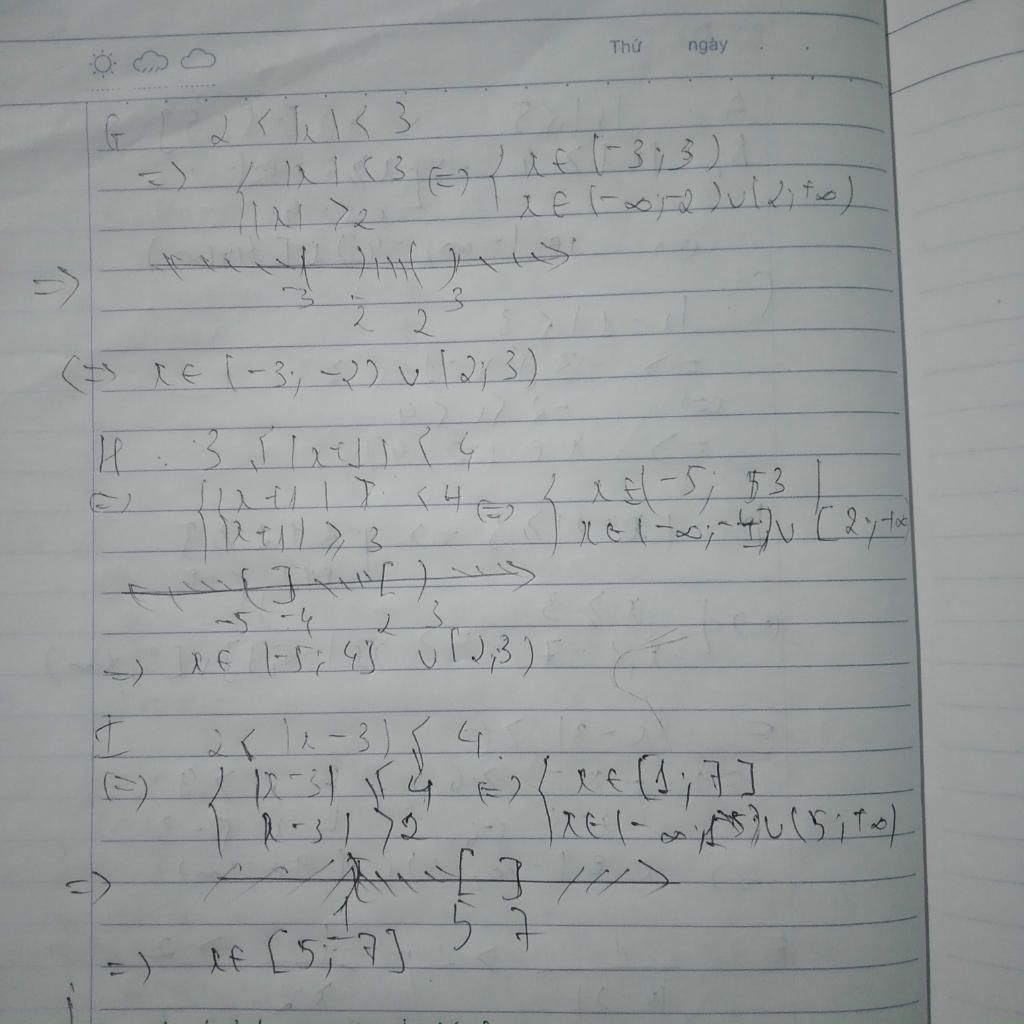 Thứ ngày . .
G 2 < |x| < 3
=> { |x| < 3 <=> { x ∈ (-3; 3)
|x| > 2 x ∈ (-∞; -2) ∪ (2; +∞)
=>
-3 -2 2 3
<=> x ∈ (-3; -2) ∪ (2; 3)
H : 3 ≤ |x+1| < 4
=> { |x+1| < 4 <=> { x ∈ (-5; 3)
|x+1| ≥ 3 x ∈ (-∞; -4] ∪ [2; +∞
-5 -4 2 3
=> x ∈ (-5; 4] ∪ [2; 3)
I 2 < |x-3| ≤ 4
<=> { |x-3| ≤ 4 <=> { x ∈ [1; 7]
|x-3| > 2 x ∈ (-∞; ∪ (5; +∞)
=>
1 5 7
=> x ∈ [5; 7]